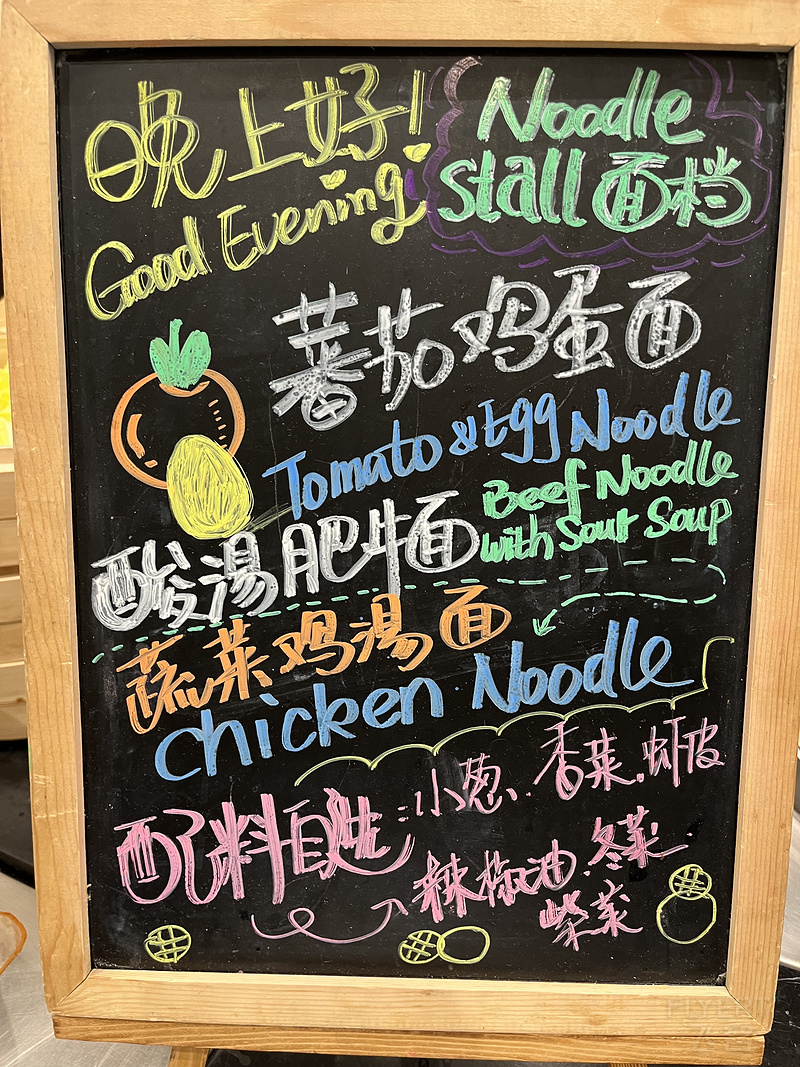 晚上好!
Good Evening
Noodle
stall 面档
蕃茄鸡蛋面
Tomato & Egg Noodle
酸湯肥牛面
Beef Noodle
with Sour Soup
蔬菜鸡湯面
Chicken Noodle
配料自选:小葱.香菜.虾皮
辣椒油.冬菜
紫菜